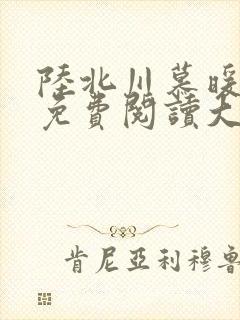 陸北川慕暖
免費閱讀大
肯尼亞利穆魯